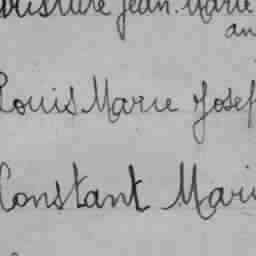 Jean Marie
an
Louis Marie Josef
Constant Mari